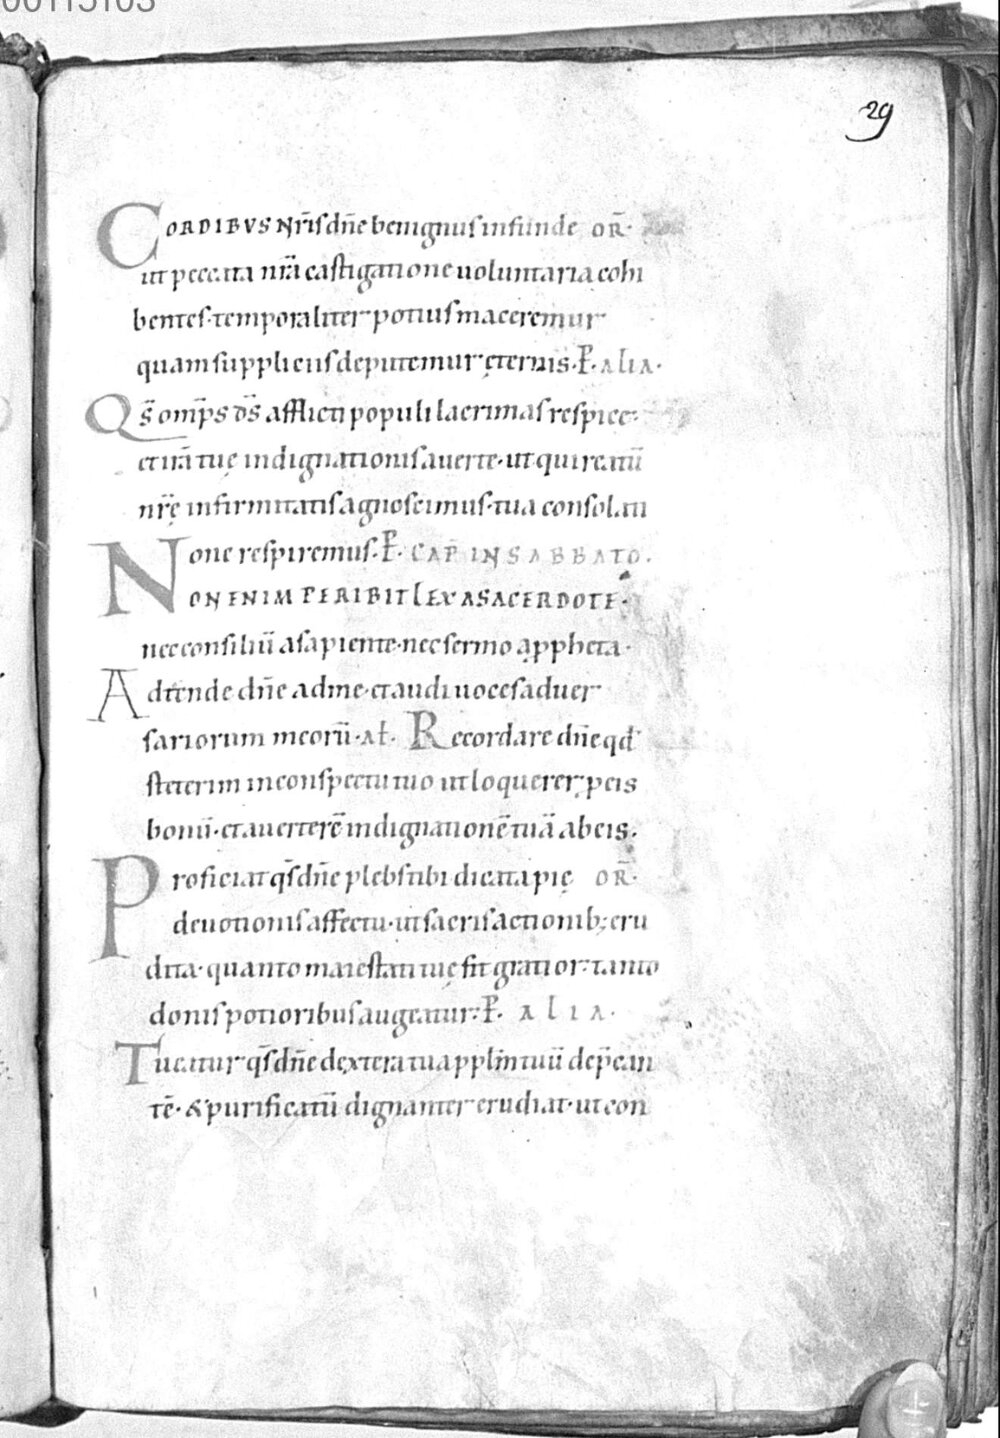 00115103
29
CORDIBVS nr̄is dn̄e benignus infunde OR̄.
ut peccata nr̄a castigatione uoluntaria cohi
bentes. temporaliter potius maceremur
quam suppliciis deputemur ęternis. P̄. ALIA.
Qs̄ omp̄s ds̄ afflicti populi lacrimas respice.
et irā tuę indignationis auerte. ut qui reatū
nr̄ę infirmitatis agnoscimus. tua consolati
one respiremus. P̄. CAP̄ IN SABBATO.
NON ENIM PERIBIT LEX A SACERDOTE.
nec consiliū a sapiente. nec sermo a ꝓpheta.
Adtende dn̄e ad me. et audi uoces aduer
sariorum meorū. Aƚ. Recordare dn̄e qd̄
steterim in conspectu tuo ut loquerer ꝑ eis
bonū. et auerterē indignationē tuā ab eis.
Proficiat qs̄ dn̄e plebs tibi dicata pię OR̄.
deuotionis affectu. ut sacris actionib; eru
dita. quanto maiestati tuę fit gratior. tanto
donis potioribus augeatur. P̄. ALIA.
Tueatur qs̄ dn̄e dextera tua ppl̄m tuū dep̄can
tē. & purificatū dignanter erudiat. ut con